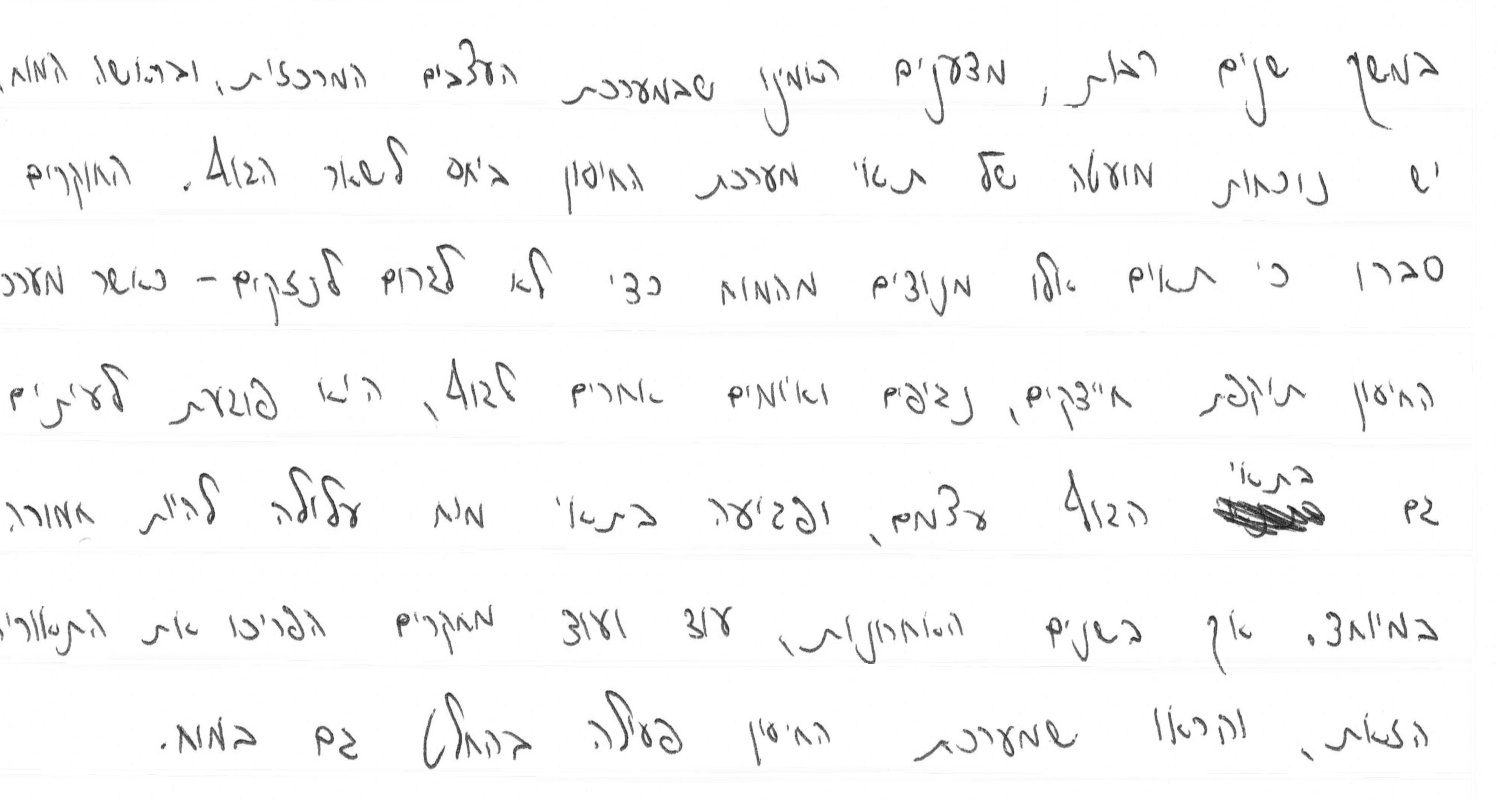 במשך שנים רבות, מדענים האמינו שבמערכת העצבים המרכזית, ובראשה המוח,
יש נוכחות מועטה של תאי מערכת החיסון ביחס לשאר הגוף. החוקרים
סברו כי תאים אלו מנודים מהמוח כדי לא לגרום לנזקים - כאשר מערכ
החיסון תוקפת חיידקים, נגיפים ואיומים אחרים לגוף, היא פוגעת לעיתים
גם בתאי הגוף עצמם, ופגיעה בתאי מוח עלולה להיות חמורה
במיוחד. אך בשנים האחרונות, עוד ועוד מחקרים הפריכו את התאורי
הזאת, והראו שמערכת החיסון פעילה בהחלט גם במוח.